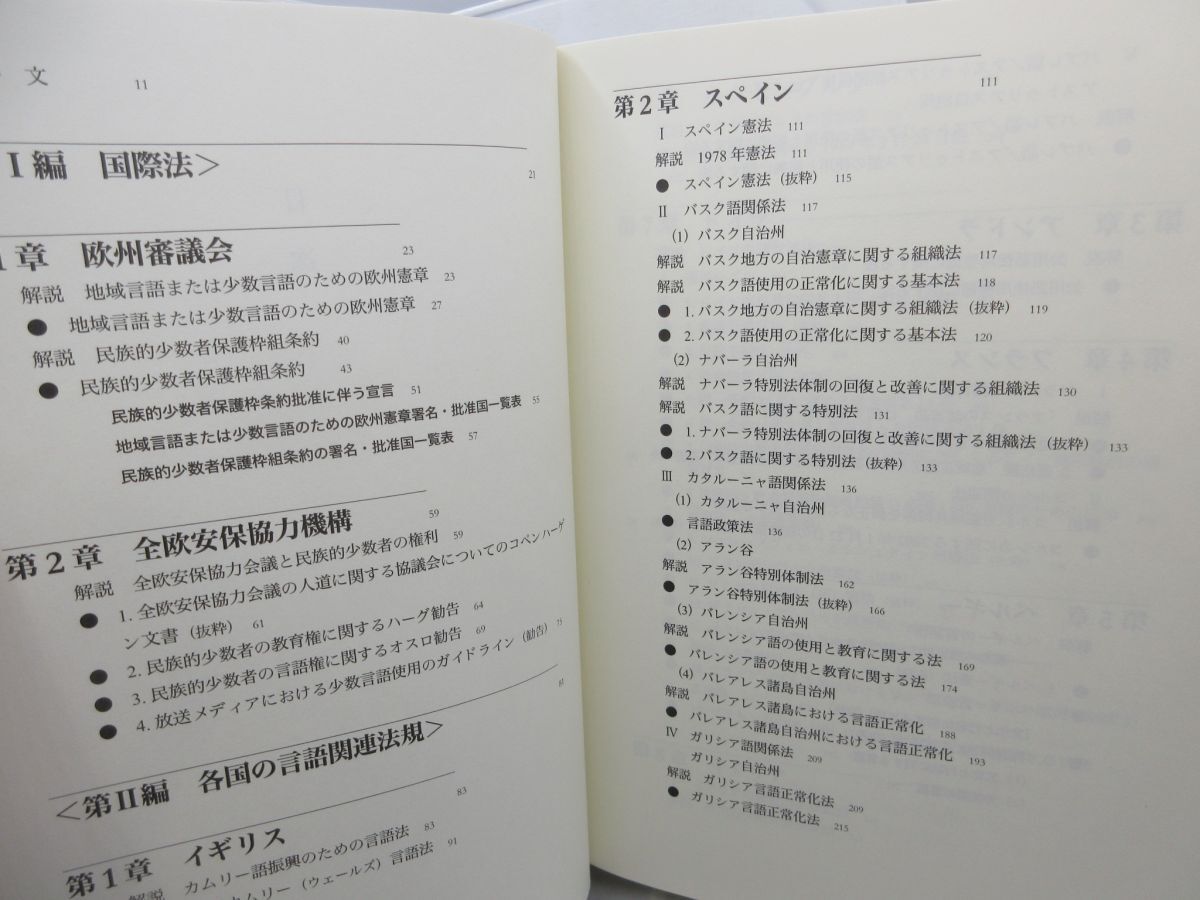 文 11
Ⅰ編 国際法＞ 21
章 欧州審議会 23
解説 地域言語または少数言語のための欧州憲章 23
● 地域言語または少数言語のための欧州憲章 27
解説 民族的少数者保護枠組条約 40
● 民族的少数者保護枠組条約 43
民族的少数者保護枠条約批准に伴う宣言 51
地域言語または少数言語のための欧州憲章署名・批准国一覧表 55
民族的少数者保護枠組条約の署名・批准国一覧表 57
第2章 全欧安保協力機構 59
解説 全欧安保協力会議と民族的少数者の権利 59
● 1. 全欧安保協力会議の人道に関する協議会についてのコペンハーゲ
ン文書（抜粋） 61
● 2. 民族的少数者の教育権に関するハーグ勧告 64
● 3. 民族的少数者の言語権に関するオスロ勧告 69
● 4. 放送メディアにおける少数言語使用のガイドライン（勧告） 75
＜第Ⅱ編 各国の言語関連法規＞ 81
第1章 イギリス 83
解説 カムリー語振興のための言語法 83
カムリー（ウェールズ）言語法 91
第2章 スペイン 111
Ⅰ スペイン憲法 111
解説 1978年憲法 111
● スペイン憲法（抜粋） 115
Ⅱ バスク語関係法 117
(1) バスク自治州
解説 バスク地方の自治憲章に関する組織法 117
解説 バスク語使用の正常化に関する基本法 118
● 1. バスク地方の自治憲章に関する組織法（抜粋） 119
● 2. バスク語使用の正常化に関する基本法 120
(2) ナバーラ自治州
解説 ナバーラ特別法体制の回復と改善に関する組織法 130
解説 バスク語に関する特別法 131
● 1. ナバーラ特別法体制の回復と改善に関する組織法（抜粋） 133
● 2. バスク語に関する特別法（抜粋） 133
Ⅲ カタルーニャ語関係法 136
(1) カタルーニャ自治州
● 言語政策法 136
(2) アラン谷
解説 アラン谷特別体制法 162
● アラン谷特別体制法（抜粋） 166
(3) バレンシア自治州
解説 バレンシア語の使用と教育に関する法 169
● バレンシア語の使用と教育に関する法 174
(4) バレアレス諸島自治州
解説 バレアレス諸島における言語正常化 188
● バレアレス諸島自治州における言語正常化 193
Ⅳ ガリシア語関係法 209
ガリシア自治州
解説 ガリシア言語正常化法 209
● ガリシア言語正常化法 215